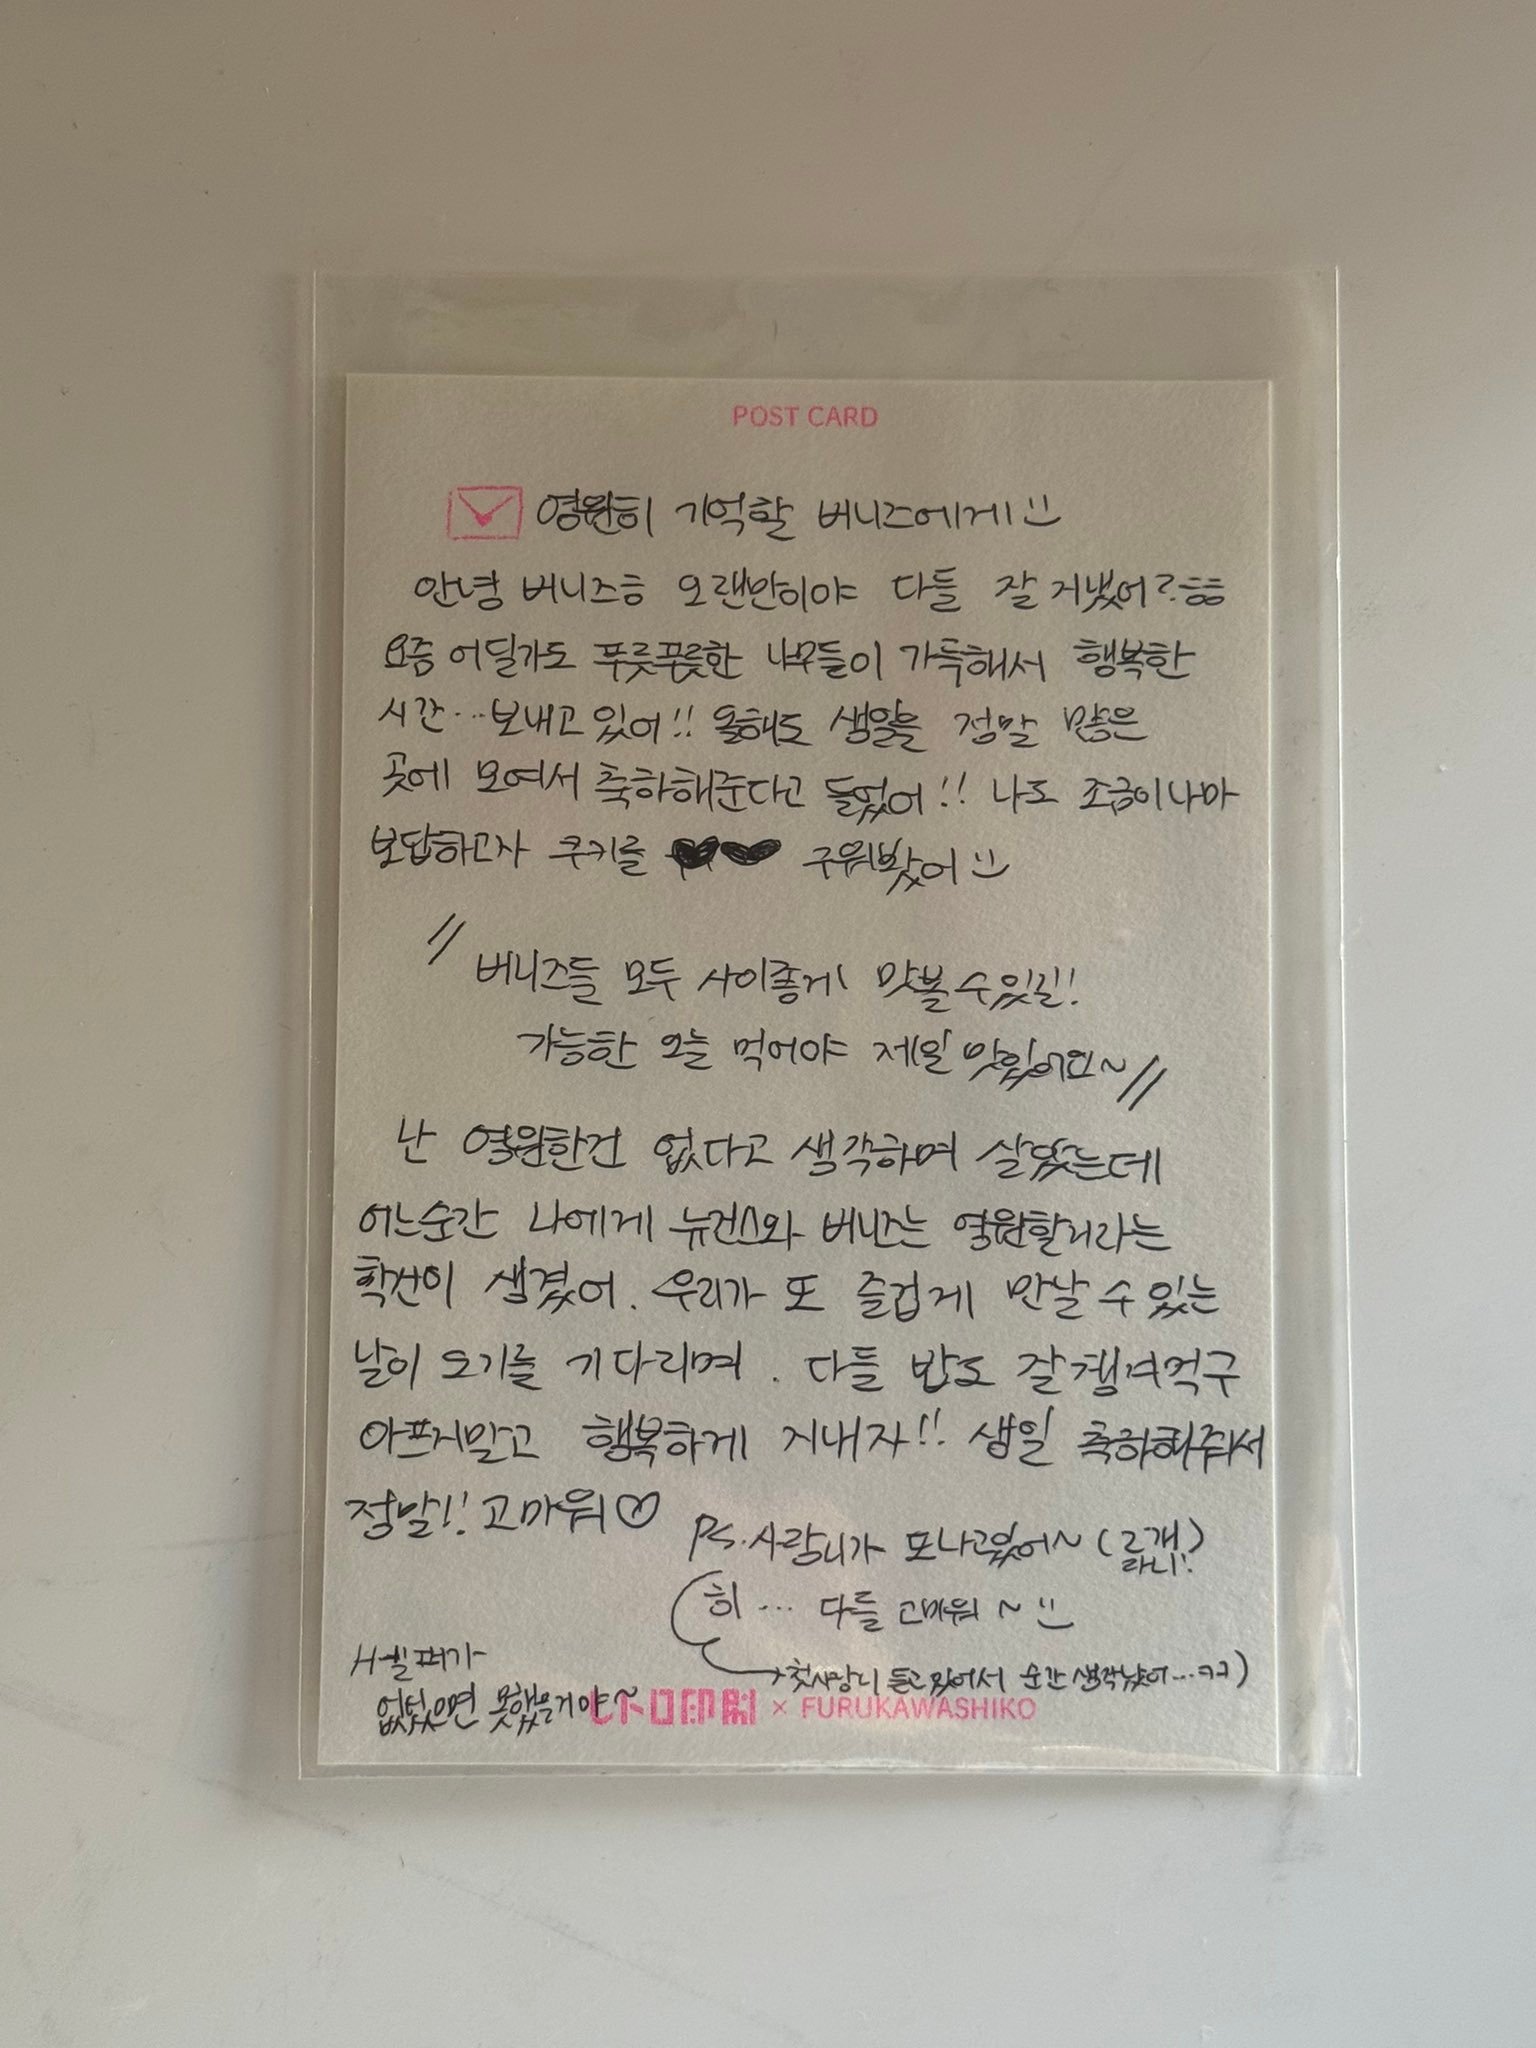 POST CARD
영원히 기억할 버니즈에게
안녕 버니즈ㅎ 오랜만이야 다들 잘 지냈어?ㅎㅎ
요즘 어딜가도 푸릇푸릇한 나무들이 가득해서 행복한
시간... 보내고 있어!! 올해도 생일을 정말 많은
곳에 모여서 축하해준다고 들었어!! 나도 조금이나마
보답하고자 쿠키를 구워봤어
"버니즈들 모두 사이좋게 맛볼 수 있길!
가능한 오늘 먹어야 제일 맛있어요~"
난 영원한건 없다고 생각하며 살았는데
어느순간 나에게 뉴진스와 버니즈는 영원할거라는
확신이 생겼어. 우리가 또 즐겁게 만날 수 있는
날이 오기를 기다리며. 다들 밥도 잘 챙겨먹구
아프지말고 행복하게 지내자!! 생일 축하해줘서
정말!! 고마워♡
PS. 사랑니가 또 나고있어~
히... 다들 고마워~
→첫사랑니 듣고 있어서 순간 생각났어...ㅋㅋ)
H-헬퍼가
없었으면 못했을거야~
レトロ印刷 × FURUKAWASHIKO